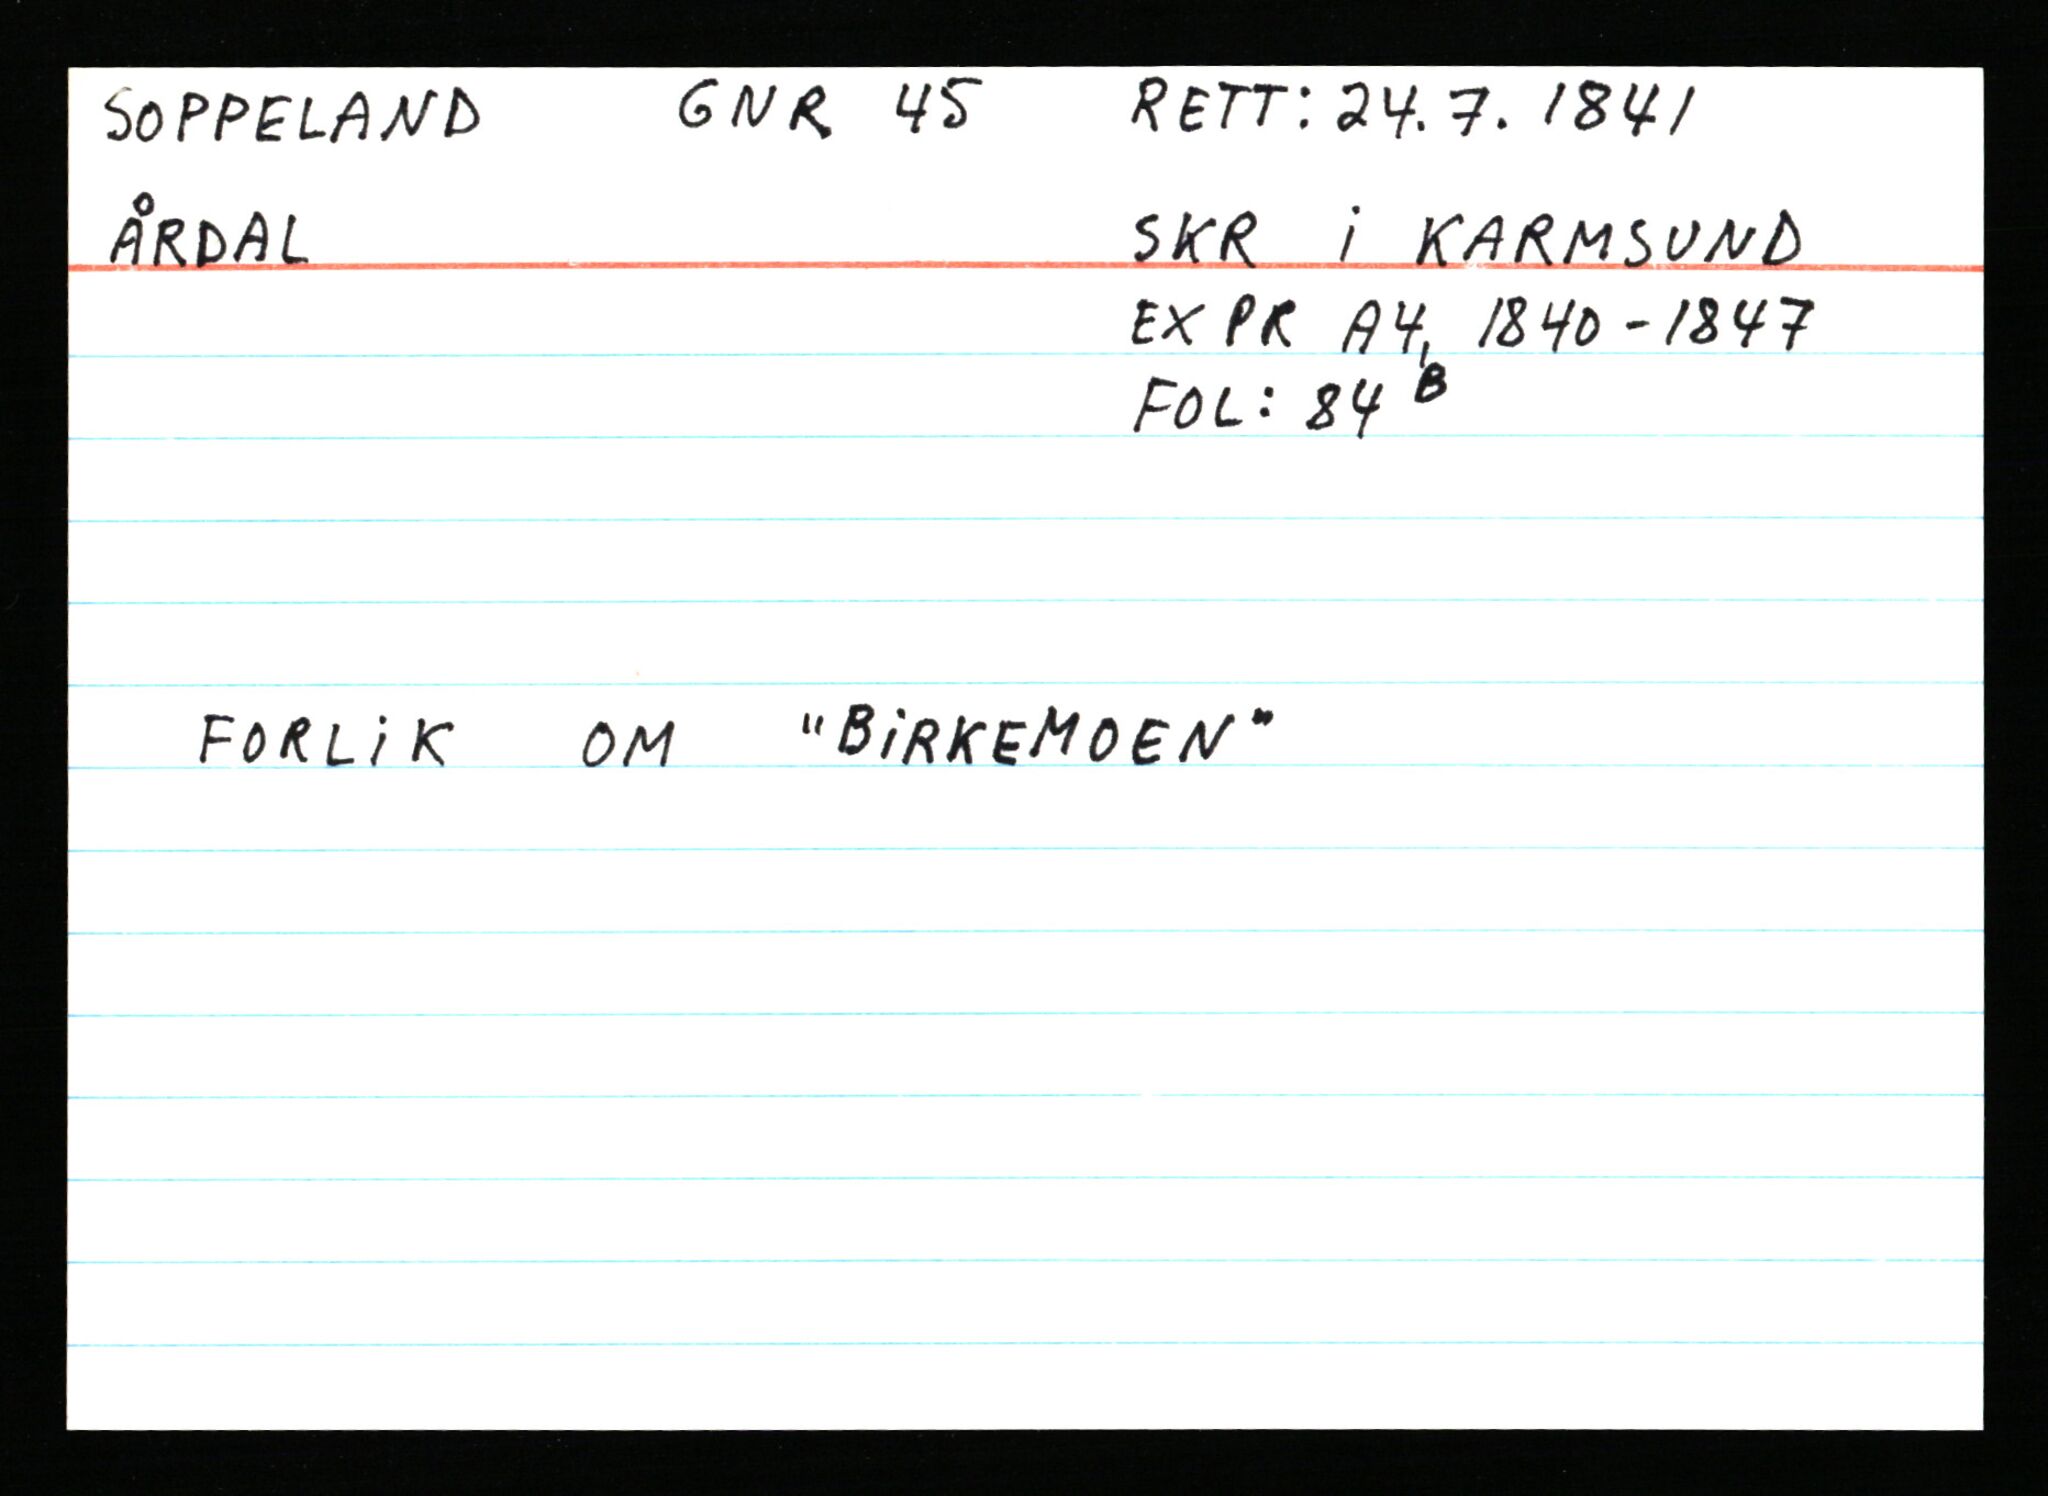 SOPPELAND GNR 45 RETT: 24.7.1841
ÅRDAL SKR i KARMSUND
EXPR A4, 1840-1847
FOL: 84 B
FORLiK OM "BiRKEMOEN"